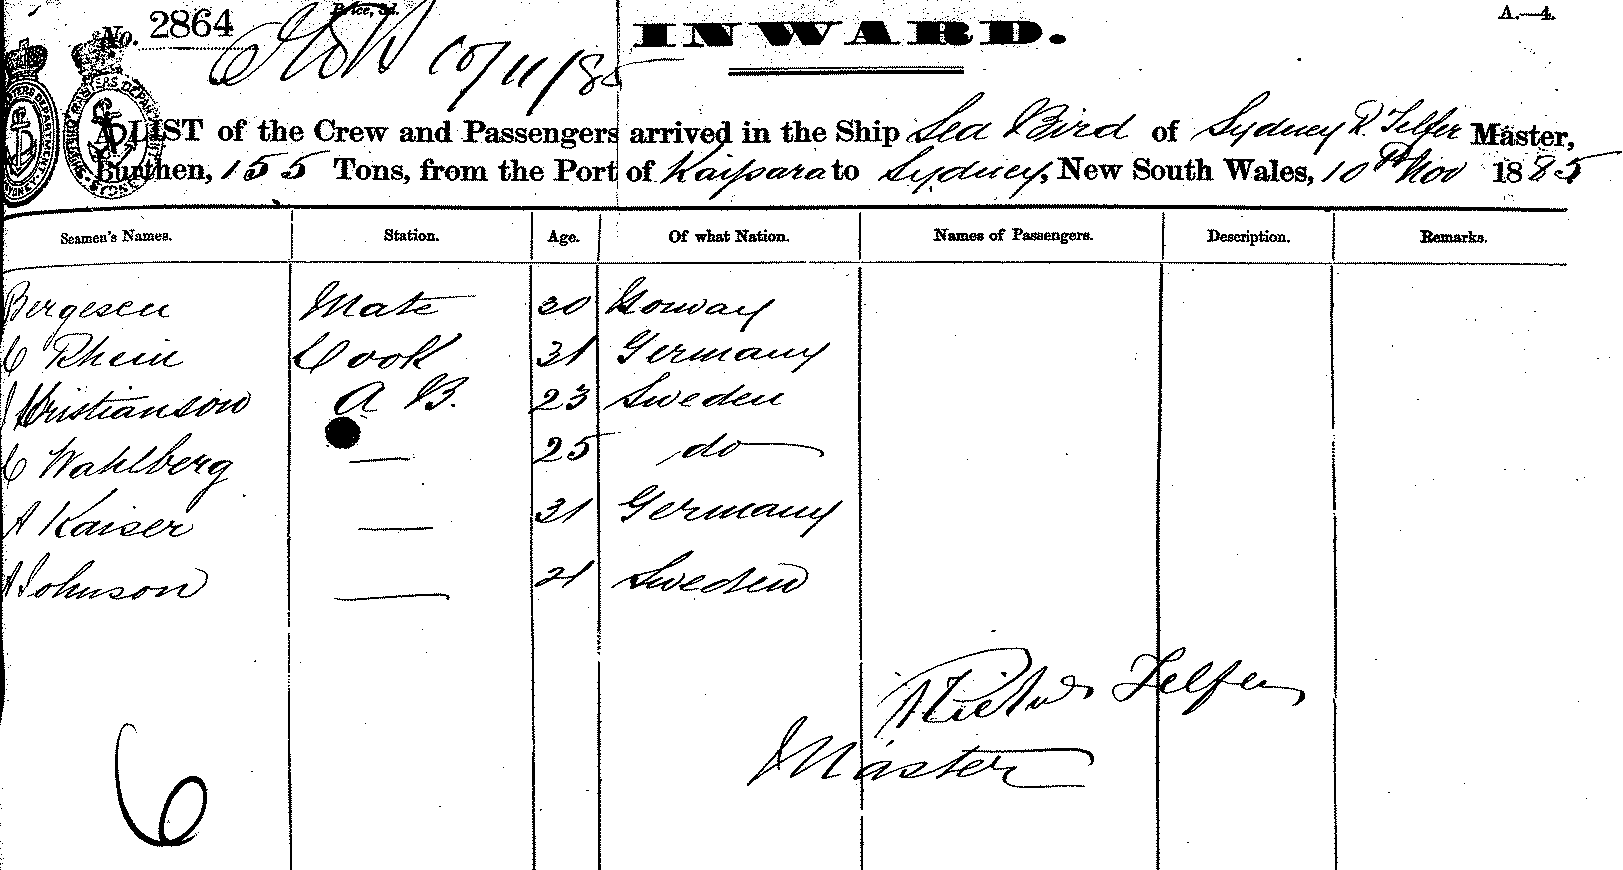 No. 2864 Price, 3d. INWARD. A.—4.
10/11/85
A LIST of the Crew and Passengers arrived in the Ship Sea Bird of Sydney R Telfer Master,
Burthen, 155 Tons, from the Port of Kaipara to Sydney, New South Wales, 10th Nov 1885
Seamen's Names. Station. Age. Of what Nation. Names of Passengers. Description. Remarks.
Bergesen Mate 30 Norway
C Rhein Cook 31 Germany
Kristianson A B. 23 Sweden
C Wahlberg — 25 do
A Kaiser — 31 Germany
A Johnson — 21 Sweden
Telfer
Master
6